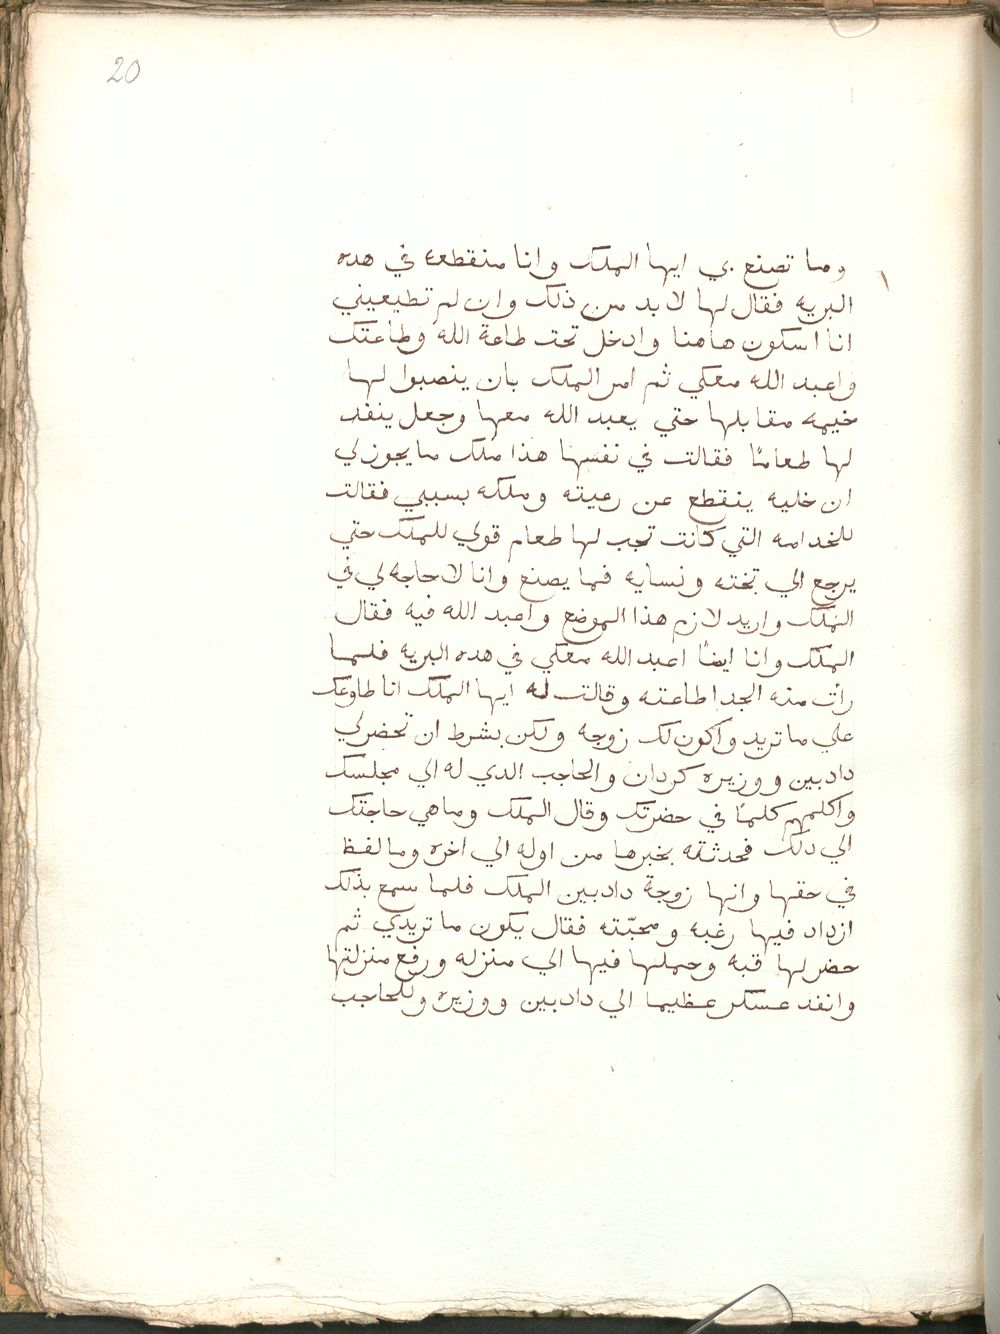 20
وما تصنع بي ايها الملك وانا منقطعه في هده
البريه فقال لها لا بد من ذلك وان لم تطيعيني
انا اسكون هاهنا وادخل تحت طاعة الله وطاعتك
واعبد الله معكي ثم امر الملك بان ينصبوا لها
خيمه مقابلها حتي يعبد الله معها وجعل ينفد
لها طعامًا فقالت في نفسها هذا ملك ما يجوز لي
ان خليه ينقطع عن رعيته وملكه بسببي فقالت
للخدامه التي كانت تجب لها طعام قولي للملك حتي
يرجع الي تخته ونسايه فما يصنع وانا لا حاجه لي في
الملك واريد لازم هذا الموضع واعبد الله فيه فقال
الملك وانا ايضًا اعبد الله معكي في هده البريه فلما
رأت منه الجد اطاعته وقالت له ايها الملك انا طاوعك
علي ما تريد واكون لك زوجه ولكن بشرط ان تحضر لي
دادبين ووزيره كردان والحاجب الدي له الي مجلسك
واكلمهم كلمًا في حضرتك وقال الملك وما هي حاجتك
الي دلك فحدثته بخبرها من اوله الي اخره وما لفظ
في حقها وانها زوجة دادبين الملك فلما سمع بذلك
ازداد فيها رغبه ومحبّته فقال يكون ما تريدي ثم
حضر لها قبه وحملها فيها الي منزله ورفع منزلتها
وانفد عسكر عظيما الي دادبين ووزيره وللحاجب